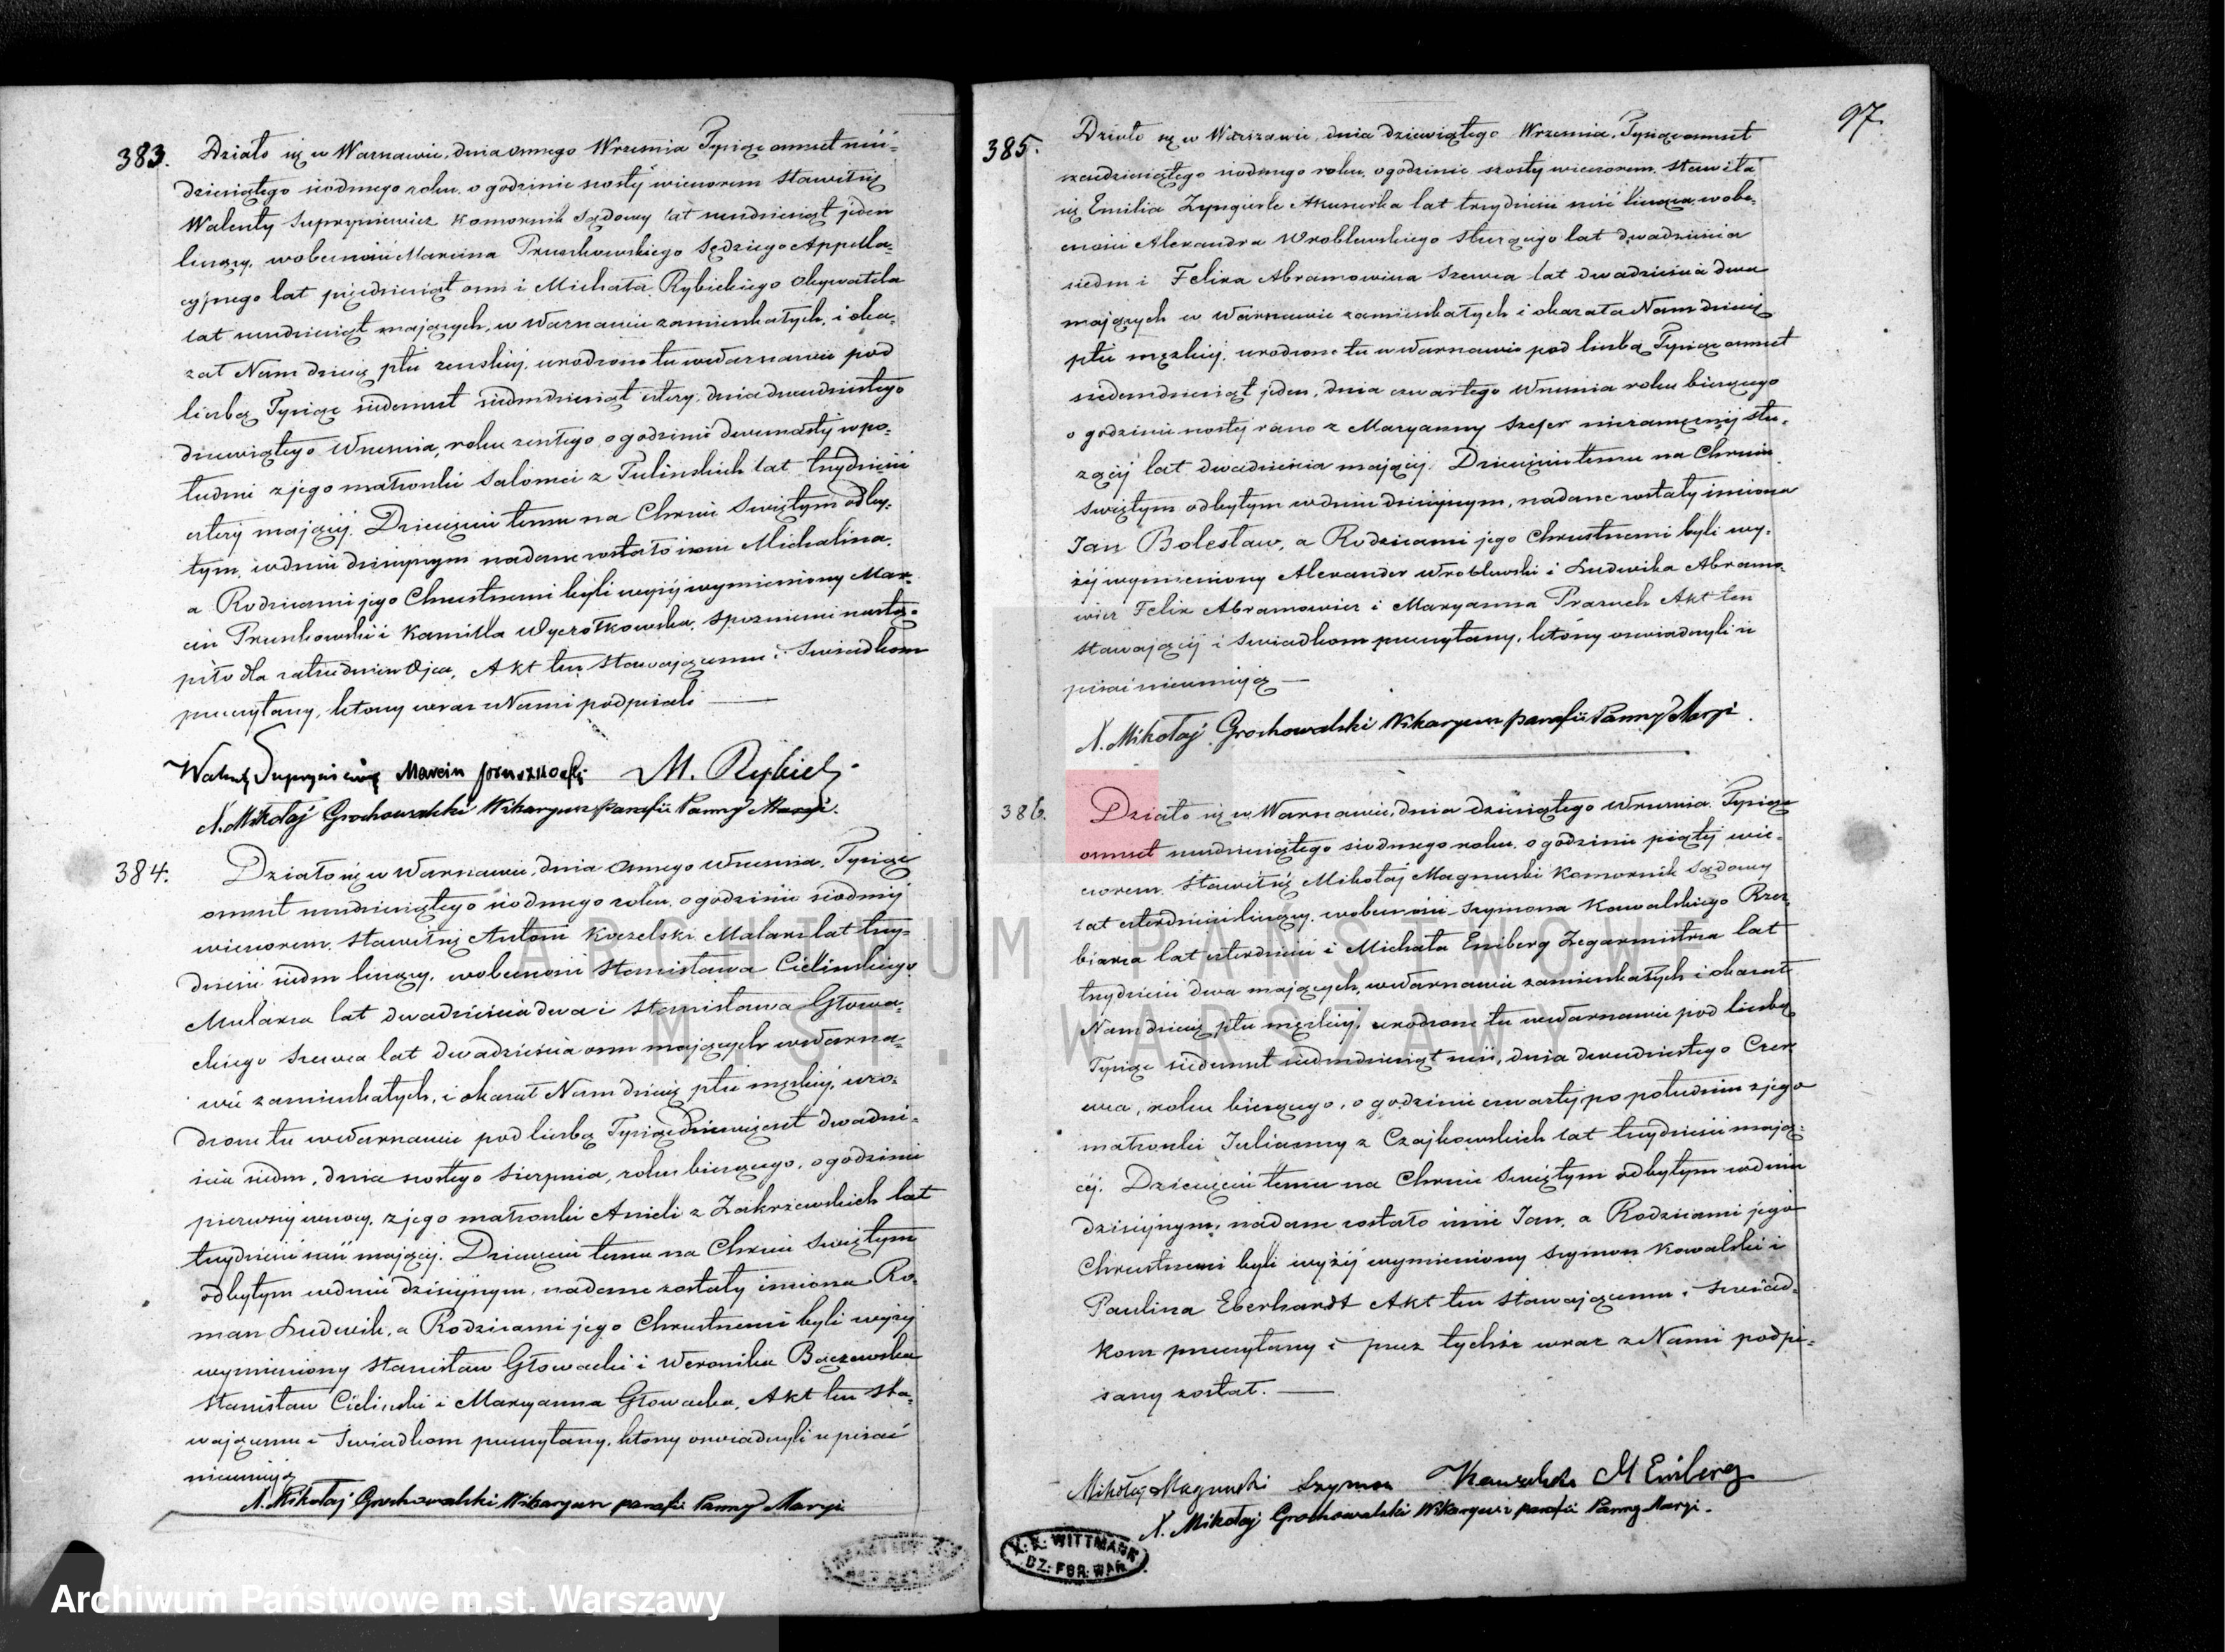 383. Działo się w Warszawie, dnia osmego Wrzesnia Tysiąc osmset sześ-
dziesiątego siodmego roku, o godzinie szosty wieczorem stawił się
Walenty Supryniewicz Komornik Sądowy lat szesdziesiąt jeden
liczący, w obecności Marcina Pruszkowskiego Sędziego Appella-
cyjnego lat pięcdziesiąt osm i Michała Rybickiego Obywatela
lat szesdziesiąt mających, w Warszawie zamieszkałych, i oka-
zał Nam dziecię płci zenskiej, urodzone tu w Warszawie pod
liczbą Tysiąc siedemset siedmdziesiąt cztery, dnia dwudziestego
dziewiątego Wrzesnia, roku zeszłego, o godzinie dwunasty w po-
łudnie z jego małzonki Salomei z Tulinskich lat trzydzieści
cztery mającej. Dziecięciu temu na Chrzcie Swiętym odby-
tym, w dniu dzisiejszym nadane zostało imie Michalina,
a Rodzicami jego Chrzestnemi byli wyzej wymieniony Mar-
cin Pruszkowski i Kamilla Wyczółkowska, spoznienie nastą-
piło dla zatrudnien Ojca, Akt ten stawającemu i Swiadkom
przeczytany, ktory wraz z Nami podpisali
Marcin Pruszkowski M. Rybicki
X. Mikołaj Grochowalski Wikaryusz parafii Panny Maryi.
384. Działo się w Warszawie, dnia osmego Wrzesnia, Tysiąc
osmset szesdziesiątego siodmego roku, o godzinie siodmej
wieczorem, stawił się Antoni Koczelski Malarz lat trzy-
dzieści siedm liczący, w obecności Stanisława Cieślinskiego
Mularza lat dwadzieścia dwa i Stanisława Głowa-
ckiego Szewca lat dwadzieścia osm mających w Warsza-
wie zamieszkałych, i okazał Nam dziecię płci męzkiej, uro-
dzone tu w Warszawie pod liczbą Tysiąc dziewięcset dwadzie-
scia siedm, dnia szostego Sierpnia, roku biezącego, o godzinie
pierwszej w nocy, z jego małzonki Anieli z Zakrzewskich lat
trzydzieści sześć mającej. Dziecięciu temu na Chrzcie Swiętym
odbytym w dniu dzisiejszym, nadane zostały imiona Ro-
man Ludwik, a Rodzicami jego Chrzestnemi byli wyzej
wymieniony Stanisław Głowacki i Weronika Baczewska
Stanisław Cieślinski i Maryanna Głowacka, Akt ten sta-
wającemu i Swiadkom przeczytany, ktory oswiadczyli ze pisać
nieumieją
X. Mikołaj Grochowalski Wikaryusz parafii Panny Maryi
97.
385. Działo się w Warszawie, dnia dziewiątego Wrzesnia, Tysiąc osmset
szesdziesiątego siodmego roku, o godzinie szosty wieczorem, stawiła
się Emilia Akuszerka lat trzydzieści sześć licząca, w obe-
cności Alexandra Wroblewskiego Słuzącego lat dwadzieścia
siedm i Felixa Abramowicza Szewca lat dwadzieścia dwa
mających w Warszawie zamieszkałych i okazała Nam dziecię
płci męzkiej, urodzone tu w Warszawie pod liczbą Tysiąc osmset
siedemdziesiąt jeden, dnia czwartego Wrzesnia roku biezącego
o godzinie szostej rano z Maryanny Szefer niezamęznej słu-
zącej lat dwadzieścia mającej. Dziecięciu temu na Chrzcie
Swiętym odbytym w dniu dzisiejszym, nadane zostały imiona
Jan Bolesław, a Rodzicami jego Chrzestnemi byli wy-
żej wymieniony Alexander Wroblewski i Ludwika Abramo-
wicz Felix Abramowicz i Maryanna Akt ten
stawającej i Swiadkom przeczytany, ktory oswiadczyli ze
pisać nieumieją
X. Mikołaj Grochowalski Wikaryusz parafii Panny Maryi.
386. Działo się w Warszawie, dnia dziesiątego Wrzesnia, Tysiąc
osmset szesdziesiątego siodmego roku, o godzinie piątej wie-
czorem, stawił się Mikołaj Magnuski Komornik Sądowy
lat czterdzieści liczący, w obecności Szymona Kowalskiego Rzez-
biarza lat czterdzieści i Michała Eniberg Zegarmistrza lat
trzydzieści dwa mających, w Warszawie zamieszkałych i okazał
Nam dziecię płci męzkiej, urodzone tu w Warszawie pod liczbą
Tysiąc siedemset siedmdziesiąt sześć, dnia dwudziestego Czer-
wca, roku biezącego, o godzinie czwartej po południu z jego
małzonki Julianny z Czajkowskich lat trzydzieści mają-
cej. Dziecięciu temu na Chrzcie Swiętym odbytym w dniu
dzisiejszym, nadane zostało imie Jan, a Rodzicami jego
Chrzestnemi byli wyżej wymieniony Szymon Kowalski i
Paulina Eberhardt Akt ten stawającemu i Swiad-
kom przeczytany i przez tychze wraz z Nami podpi-
sany został.
Mikołaj Magnuski Szymon Kowalski M Eniberg
X. Mikołaj Grochowalski Wikaryusz parafii Panny Maryi.
X. K. WITTMANN
DZ: FOR: WAR
ARCHIWUM PAŃSTWOW
M.ST. WARSZAWY
Archiwum Państwowe m.st. Warszawy